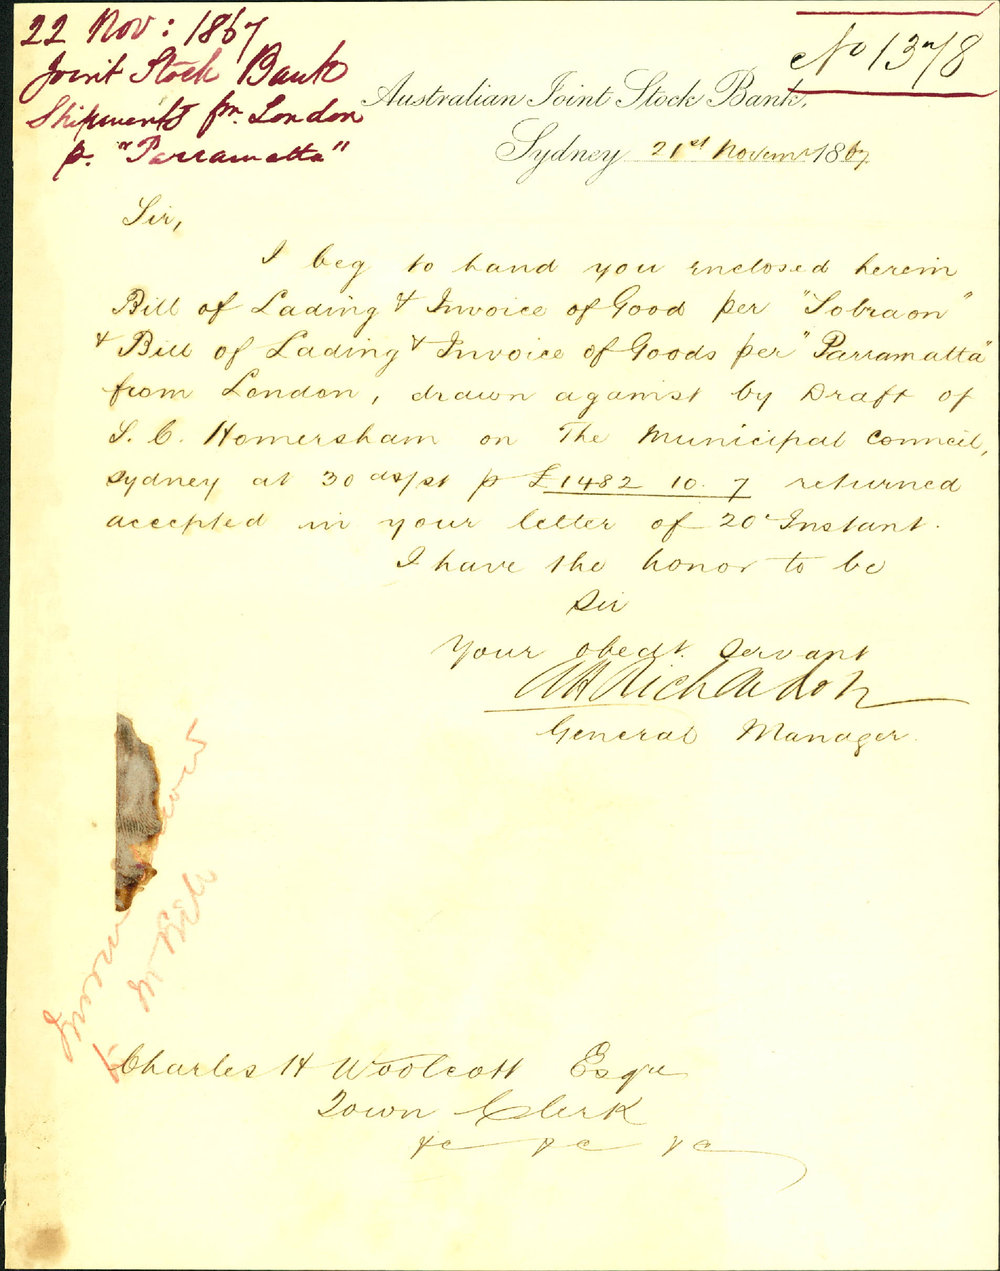 22 Nov: 1867
Joint Stock Bank
Shipments fm. London
p. "Parramatta"
No 1378
Australian Joint Stock Bank,
Sydney 21st Novemr 1867
Sir,
I beg to hand you enclosed herein
Bill of Lading & Invoice of Good per "Sobraon"
& Bill of Lading & Invoice of Goods per "Parramatta"
from London, drawn against by Draft of
S. C. Homersham on The Municipal Council,
Sydney at 30 ds/st p £1482 10. 7 returned
accepted in your letter of 20 Instant.
I have the honor to be
Sir
Your obedt. Servant
AH Richardson
General Manager.
Charles H Woolcott Esqre
Town Clerk
&c &c &c